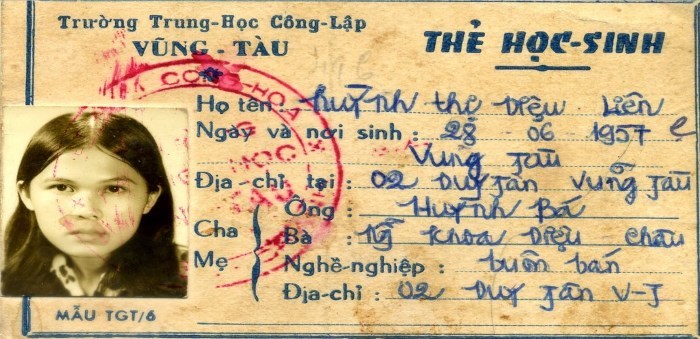 Trường Trung-Học Công-Lập
VŨNG-TÀU
THẺ HỌC-SINH
CỘNG-HÒA
HỌC
Họ tên: Huỳnh thị Diệu Liên
Ngày và nơi sinh: 28 06 1957
Vũng Tàu
Địa-chỉ tại: 02 Duy Tân Vũng Tàu
Cha Mẹ
Ông: Huỳnh Bá
Bà: Khoa Diệu Châu
Nghề-nghiệp: buôn bán
Địa-chỉ: 02 Duy Tân V-T
MẪU TGT/6